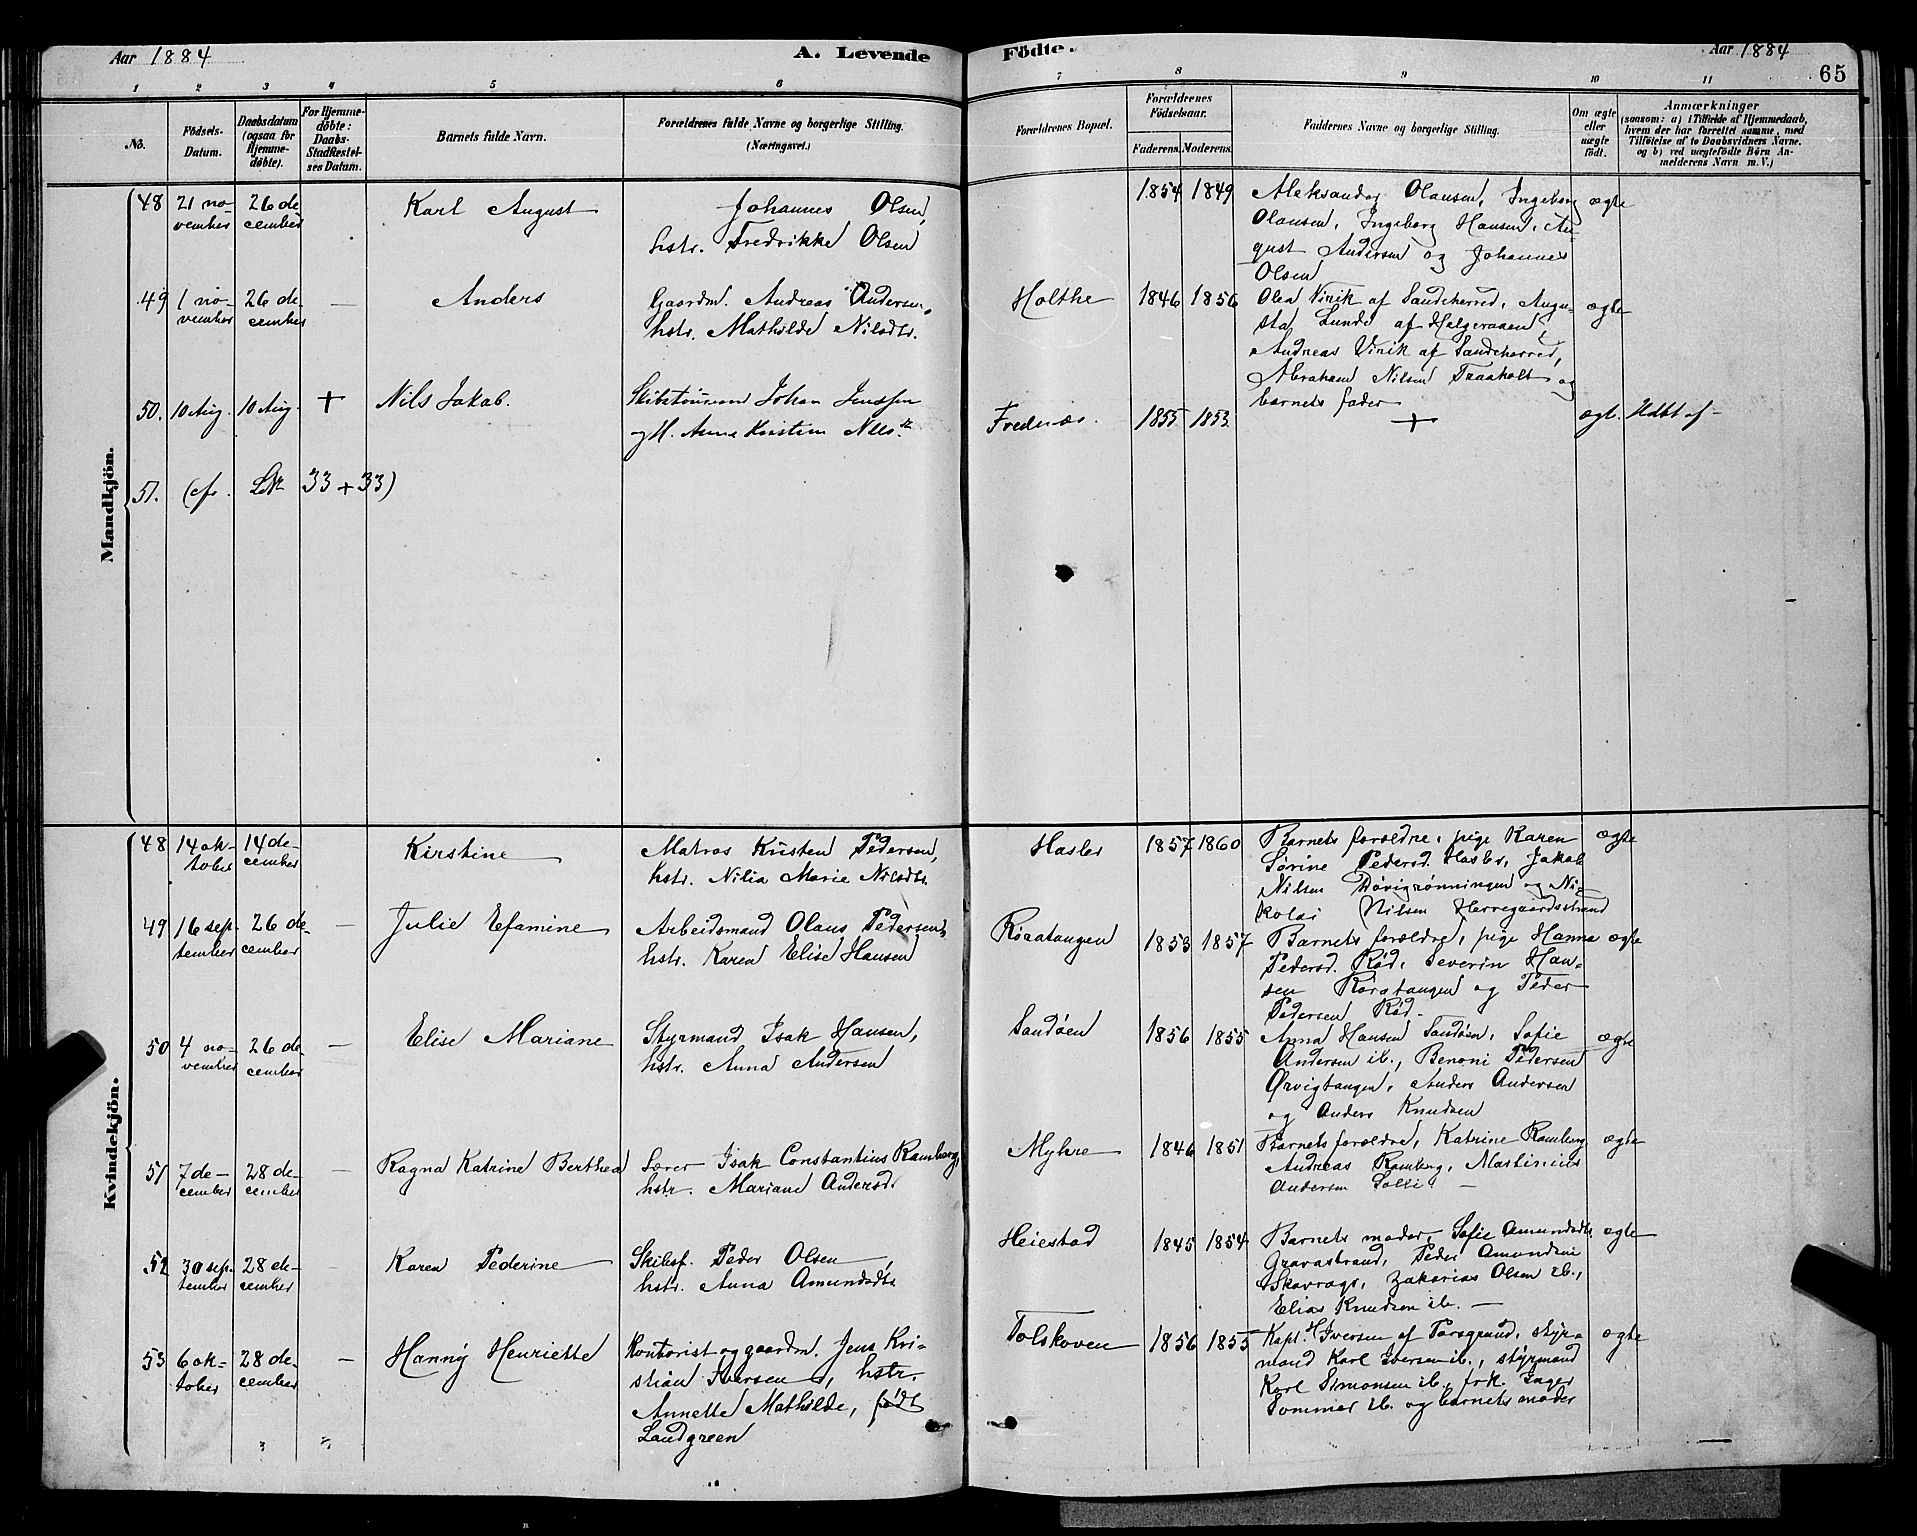 Aar 1884
A. Levende
Födte.
Aar 1884
65
1 2 3 4 5 6 7 8 9 10 11
No.
Födsels-
Datum.
Daabsdatum
(ogsaa for
Hjemme-
döbte).
For Hjemme-
döbte:
Daabs-
Stadfæstel-
ses Datum.
Barnets fulde Navn.
Forældrenes fulde Navne og borgerlige Stilling.
(Næringsvei.)
Forældrenes Bopæl.
Forældrenes
Födselsaar.
Faderens. Moderens.
Faddernes Navne og borgerlige Stilling.
Om ægte
eller
uægte
født.
Anmærkninger
(saasom: a) i Tilfælde af Hjemmedaab,
hvem der har forrettet samme, med
Tilföielse af to Daabsvidners Navne.
og b) ved uægtefödte Börn An-
melderens Navn m. V.)
Mandkjön.
48 21 no-
vember
26 de
cember
Karl August
Johannes Olsen,
hstr. Fredrikke Olsen
1854 1849
Aleksander Olausen, Ingeborg
Olausen, Ingeborg Hansen, Au-
gust Andersen og Johannes
Olsen
ægte
49 1 no-
vember
26 de-
cember
—
Anders
Gaardm. Andreas Andersen,
hstr. Mathilde Nilsdtr.
Holthe
1846 1856
Olea Virik af Sandeherred, Augu-
sta Lunde af Helgeraaen,
Andreas Virik af Sandeherred,
Abraham Nilsen Traaholt og
barnets fader
ægte
50. 10 Aug. 10 Aug. +
Nils Jakab.
Johan Jenssen
og H. Anne Kirstine Nils.
Frednæs.
1855 1853
+
ægt.
51. (cfr. 33 + 33)
Kvindekjön.
48 14 ok-
tober
14 de-
cember
Kirstine
Matros Kristen Pedersen,
hstr. Nilia Marie Nilsdtr.
Hasler
1857 1860
Barnets forældre, pige Karen
Sørine Pedersd. Hasler, Jakob
Nilsen Døvigrønningen og Ni-
kolai Nilsen Herregaardsstrand
ægte
49 16 sep-
tember
26 de-
cember
—
Julie Efamine
Arbeidsmand Olaus Pedersen,
hstr. Karen Elise Hansen
Røratangen
1853 1857
Barnets forældre, pige Hanna
Pedersd. Rød, Severin Han-
sen Røratangen og Peder
Pedersen Rød.
ægte
50 4 no-
vember
26 de-
cember
—
Elise Mariane
Styrmand Isak Hansen,
hstr. Anna Andersen
Sandøen
1856 1855
Anna Hansen Sandøen, Sofie
Andersen ib., Benoni Pedersen
Ørvigtangen, Anders Andersen
og Anders Knudsen
ægte
51 7 de-
cember
28 de-
cember
—
Ragna Katrine Berthea
Lærer Isak Constantius Ramberg,
hstr. Mariane Andersd.
Myhre
1846 1851
Barnets forældre, Katrine Ramberg
Andreas Ramberg, Martinius
Andersen Solli. —
ægte
52 30 sep-
tember
28 de-
cember
Karen Pederine
Skibsf. Peder Olsen,
hstr. Anna Amundsdtr.
Heiestad
1845 1854
Barnets moder, Sofie Amundsdtr.
Gravastrand, Peder Amundsen
Skavrage, Zakarias Olsen ib.,
Elias Knudsen ib. —
ægte
53 6 ok-
tober
28 de-
cember
—
Hanny Henriette
Kontorist og gaardm. Jens Kri-
stian Iversen, hstr.
Annette Mathilde, født
Landgreen
Tolskoven
1856 1855
Kapt. H Iversen af Porsgrund, styr-
mand Karl Iversen ib., styrmand
Karl Simonsen ib., frk. Inger
Sommer ib. og barnets moder
ægte